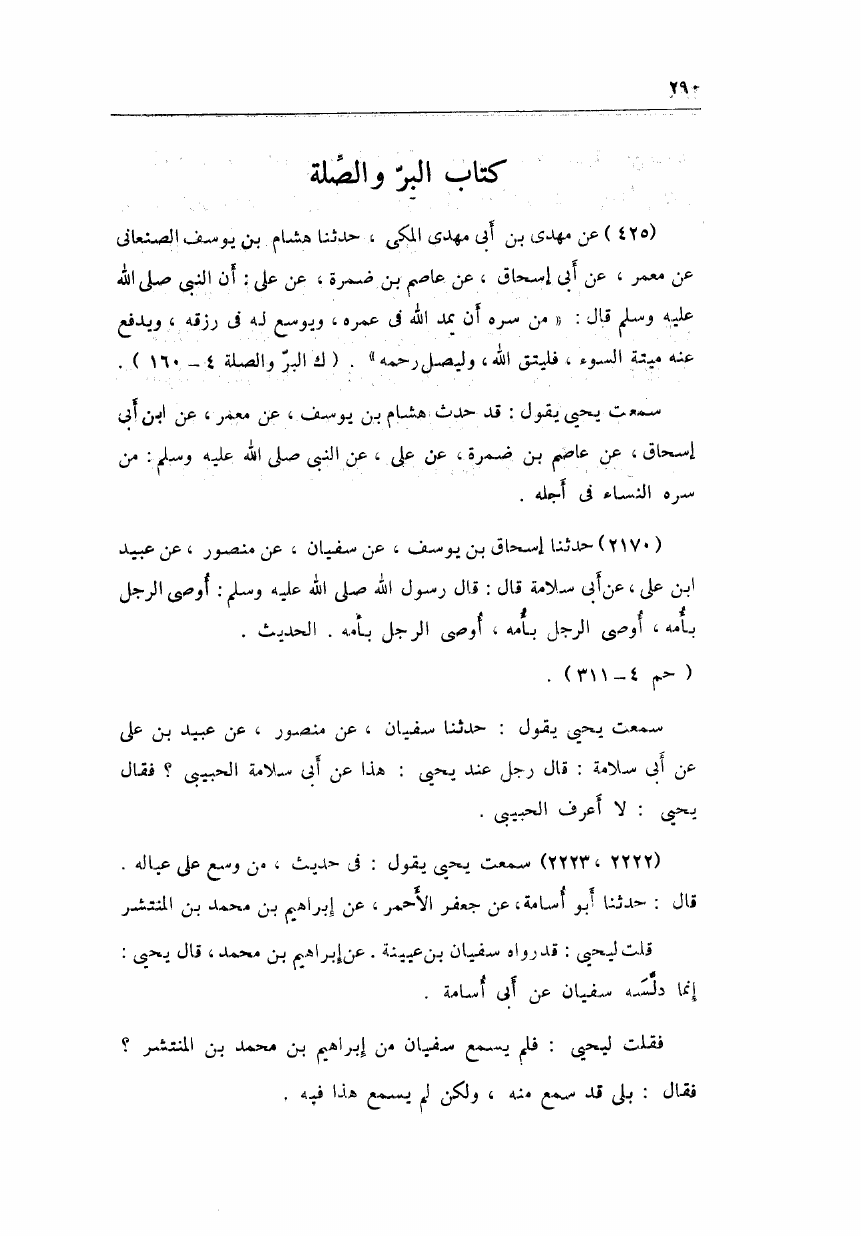 ٢٩٠
كتاب البرّ والصِّلة
(٤٢٥) عن مهدى بن أبى مهدى المكى ، حدثنا هشام بن يوسف الصنعانى
عن معمر ، عن أبى إسحاق ، عن عاصم بن ضمرة ، عن على : أن النبى صلى الله
عليه وسلم قال : « من سره أن يمد الله فى عمره ، ويوسع له فى رزقه ، ويدفع
عنه ميتة السوء ، فليتق الله ، وليصل رحمه » . ( ك البرّ والصلة ٤ – ١٦٠ ) .
سمعت يحيى يقول : قد حدث هشام بن يوسف ، عن معمر ، عن ابن أبى
إسحاق ، عن عاصم بن ضمرة ، عن على ، عن النبى صلى الله عليه وسلم : من
سره النساء فى أجله .
(٢١٧٠) حدثنا إسحاق بن يوسف ، عن سفيان ، عن منصور ، عن عبيد
ابن على ، عن أبى سلامة قال : قال رسول الله صلى الله عليه وسلم : أُوصى الرجل
بأُمه ، أُوصى الرجل بأُمه ، أُوصى الرجل بأمه . الحديث .
( حم ٤–٣١١ ) .
سمعت يحيى يقول : حدثنا سفيان ، عن منصور ، عن عبيد بن على
عن أبى سلامة : قال رجل عند يحيى : هذا عن أبى سلامة الحبيبى ؟ فقال
يحيى : لا أعرف الحبيبى .
(٢٢٢٢ ، ٢٢٢٣) سمعت يحيى يقول : فى حديث ، من وسع على عياله .
قال : حدثنا أبو أُسامة ، عن جعفر الأحمر ، عن إبراهيم بن محمد بن المنتشر
قلت ليحيى : قد رواه سفيان بن عيينة . عن إبراهيم بن محمد ، قال يحيى :
إنما دلَّسَه سفيان عن أبى أُسامة .
فقلت ليحيى : فلم يسمع سفيان من إبراهيم بن محمد بن المنتشر ؟
فقال : بلى قد سمع منه ، ولكن لم يسمع هذا فيه .